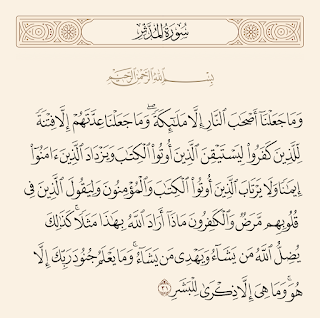 سُورَةُ المُدَّثِّرِ
بِسْمِ اللَّهِ الرَّحْمَٰنِ الرَّحِيمِ
وَمَا جَعَلْنَا أَصْحَٰبَ ٱلنَّارِ إِلَّا مَلَٰٓئِكَةً ۖ وَمَا جَعَلْنَا عِدَّتَهُمْ إِلَّا فِتْنَةً
لِّلَّذِينَ كَفَرُوا۟ لِيَسْتَيْقِنَ ٱلَّذِينَ أُوتُوا۟ ٱلْكِتَٰبَ وَيَزْدَادَ ٱلَّذِينَ ءَامَنُوٓا۟
إِيمَٰنًا وَلَا يَرْتَابَ ٱلَّذِينَ أُوتُوا۟ ٱلْكِتَٰبَ وَٱلْمُؤْمِنُونَ وَلِيَقُولَ ٱلَّذِينَ فِى
قُلُوبِهِم مَّرَضٌ وَٱلْكَٰفِرُونَ مَاذَآ أَرَادَ ٱللَّهُ بِهَٰذَا مَثَلًا ۚ كَذَٰلِكَ
يُضِلُّ ٱللَّهُ مَن يَشَآءُ وَيَهْدِى مَن يَشَآءُ ۚ وَمَا يَعْلَمُ جُنُودَ رَبِّكَ إِلَّا
هُوَ ۚ وَمَا هِىَ إِلَّا ذِكْرَىٰ لِلْبَشَرِ ٣١